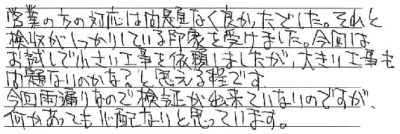 営業の方の対応は問題なく良かったでした。それと
検収がしっかりしている印象を受けました。今回は
お試しで小さい工事を依頼しましたが、大きい工事も
問題ないのかな?と思える程です。
今回雨漏りなので検証が出来ていないのですが、
何かあっても心配ないと思っています。